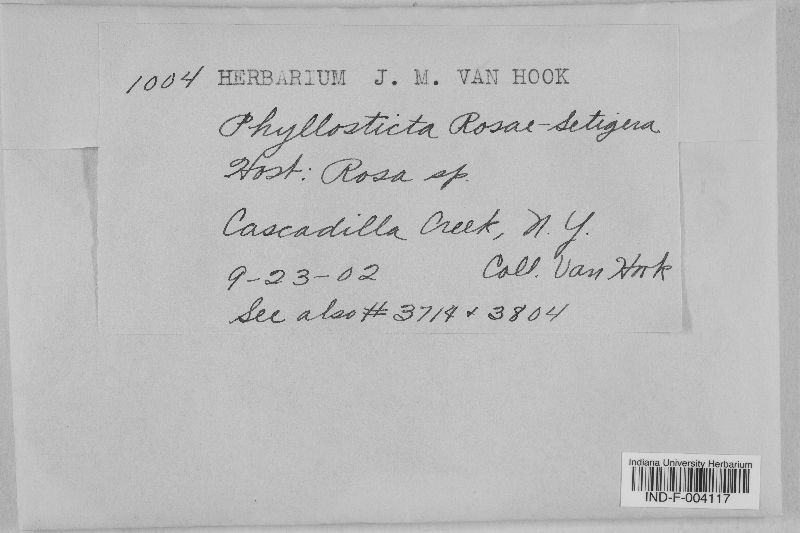 1004 HERBARIUM J. M. VAN HOOK
Phyllosticta Rosae-Setigera
Host: Rosa sp.
Cascadilla Creek, N. Y.
9-23-02 Coll. Van Hook
See also # 3714 & 3804
Indiana University Herbarium
IND-F-004117